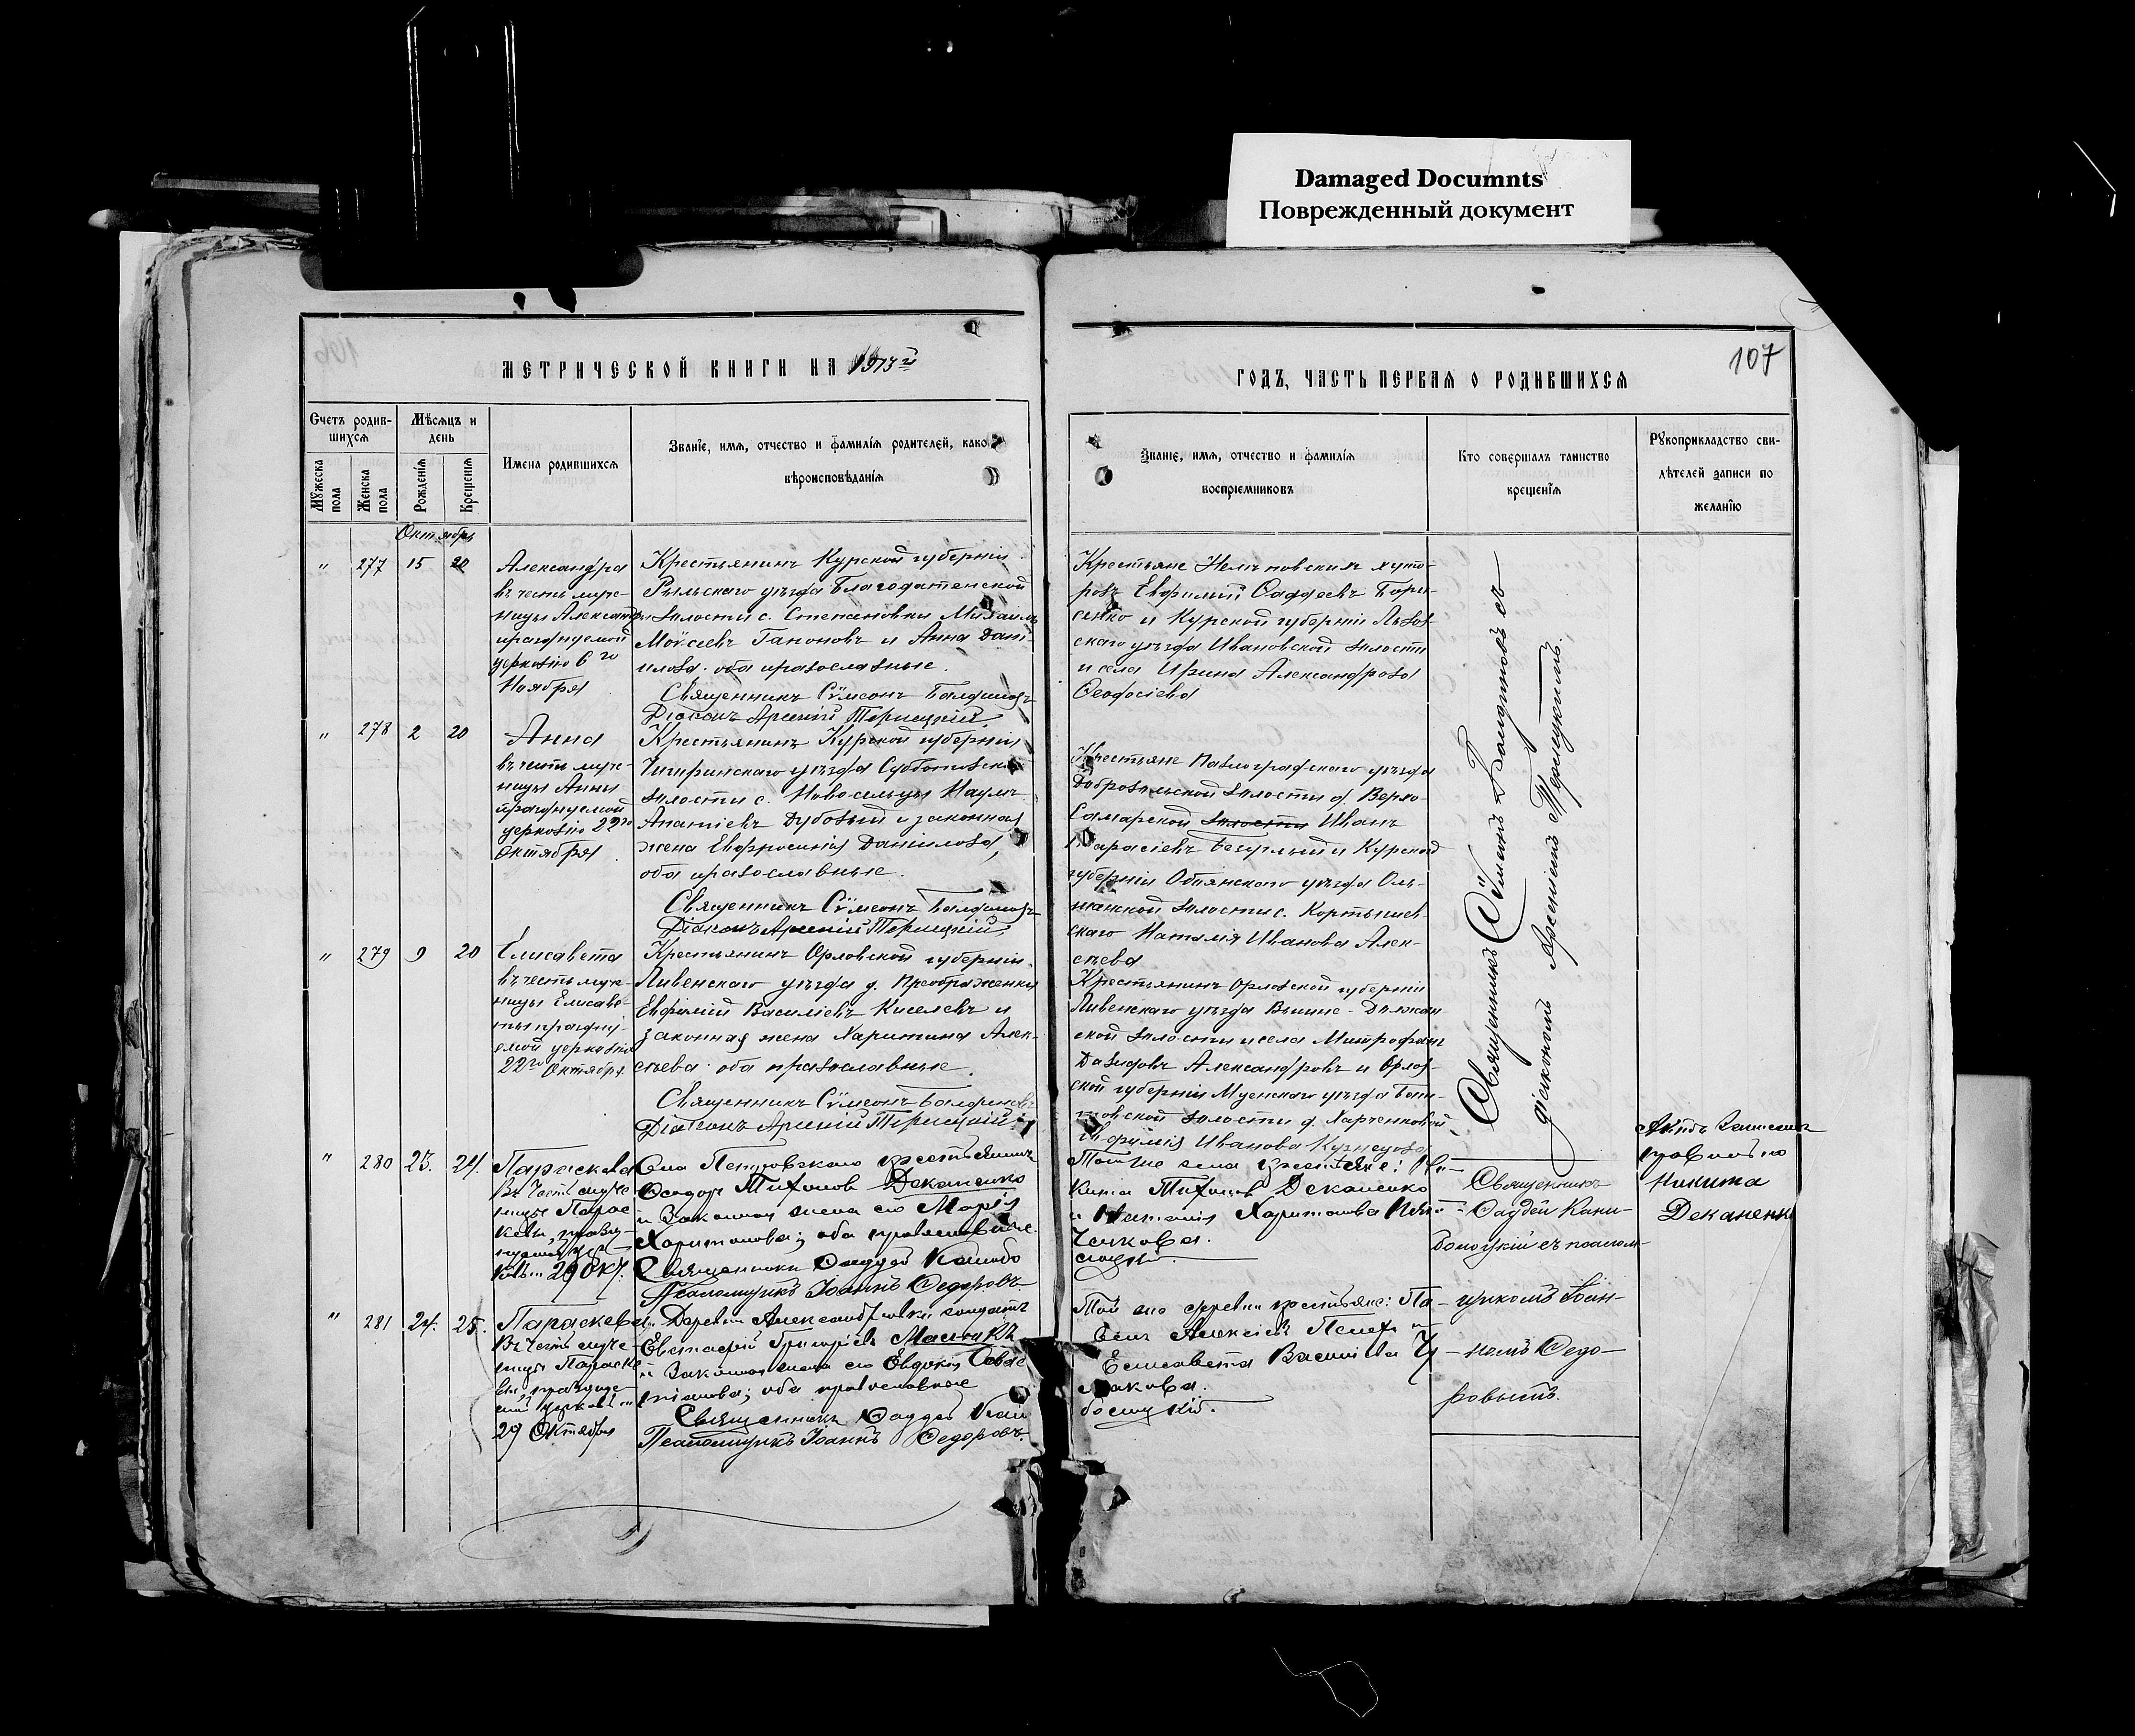 Damaged Documnts
Поврежденный документ
МЕТРИЧЕСКОЙ КНИГИ НА 1913й
ГОДЪ, ЧАСТЬ ПЕРВАЯ О РОДИВШИХСЯ
107
Счетъ родив-
шихся
Мѣсяцъ и
день
Мужеска
пола
Женска
пола
Рожденїя
Крещенїя
Имена родившихся
Званїе, имя, отчество и фамилїя родителей, како
вѣроисповѣданїя
Званїе, имя, отчество и фамилїя
воспрїемниковъ
Кто совершалъ таинство
крещенїя
Рукоприкладство сви-
дѣтелей записи по
желанїю
Октябрь
" 277 15 20
Александра
въ честь муче-
ницы Александры
празднуемой
церковію 6го
Ноября
Крестьянинъ Курской губерніи
Рыльскаго уѣзда Благодатенской
волости с. Степановки Михаилъ
Моѵсеевъ Гапоновъ и Анна Дані-
илова. оба православные.
Священникъ Сѵмеонъ
Діаконъ Арсеній
Крестьяне хуто-
ровъ Евфимій Фаддеевъ Бори-
сенко и Курской губерніи Льгов-
скаго уѣзда Ивановской волости
и села Ирина Александрова
Феодосіева
" 278 2 20
Анна
въ честь муче-
ницы Анны
празднуемой
церковію 22го
Октября
Крестьянинъ Курской губерніи
Чигиринскаго уѣзда Субботовской
волости с. Новосельцы Наумъ
Дубовый и законная
жена Евфросинія Данилова,
оба православные.
Священникъ Сѵмеонъ
Діаконъ Арсеній
Крестьяне Павлоградскаго уѣзда
Добровольской волости д. Верхо-
Самарской волости Иванъ
и Курской
губерніи Обоянскаго уѣзда Оль-
шанской волости с.
скаго Наталія Иванова Алек-
сѣева
" 279 9 20
Елисавета
въ честь муче-
ницы Елисаве-
ты праздну-
емой церковію
22го Октября
Крестьянинъ Орловской губерніи
Ливенскаго уѣзда д. Преображенки
Евфимій Василіевъ Киселевъ и
законная жена Харитина Алек-
сѣева. оба православные.
Священникъ Сѵмеонъ
Діаконъ Арсеній
Крестьянинъ Орловской губерніи
Ливенскаго уѣзда
ской волости и села Митрофанъ
Давидовъ Александровъ и Орлов-
ской губерніи Мценскаго уѣзда
волости д.
Иванова Кузнецова
Священникъ Сѵмеонъ съ
діакономъ Арсеніемъ
" 280 23. 24.
Параскева
Въ честь муче
ницы Парас
кевы, празд-
нуемой цер-
ковью 29 Окт.
Села Петровскаго крестьянинъ
Феодоръ Тихоновъ Деканенко
и Законная жена его Марія
Харитонова; оба православные.
Священникъ Фаддей
Псаломщикъ Іоаннъ Федоровъ
Того же села крестьяне: Ни-
кита Тихоновъ Деканенко
и Наталія Харитонова
Священникъ
Фаддей Кани-
болоцкій съ псалом-
щикомъ Іоан-
номъ Федо-
ровымъ
Актъ записанъ
правильно
Никита
Деканенк
" 281 24. 25.
Параскева
Въ честь муче-
ницы Параске
вы, праздуе-
мой церковью
29 Октября
Деревни Александровки солдатъ
Евстафій Григоріевъ
и Законная жена его Евдокія Савас
тіанова; оба православные
Священникъ Фаддей Кани
Псаломщикъ Іоаннъ Федоровъ.
Той же деревни крестьяне: Па-
велъ Алексіевъ и
Елисавета Василіева
болоцкій.